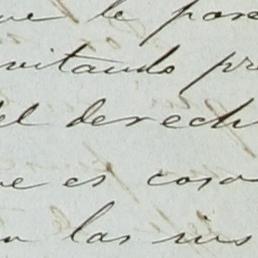 ue le pose
vitando pr
del derech
ue es cosa
las ins